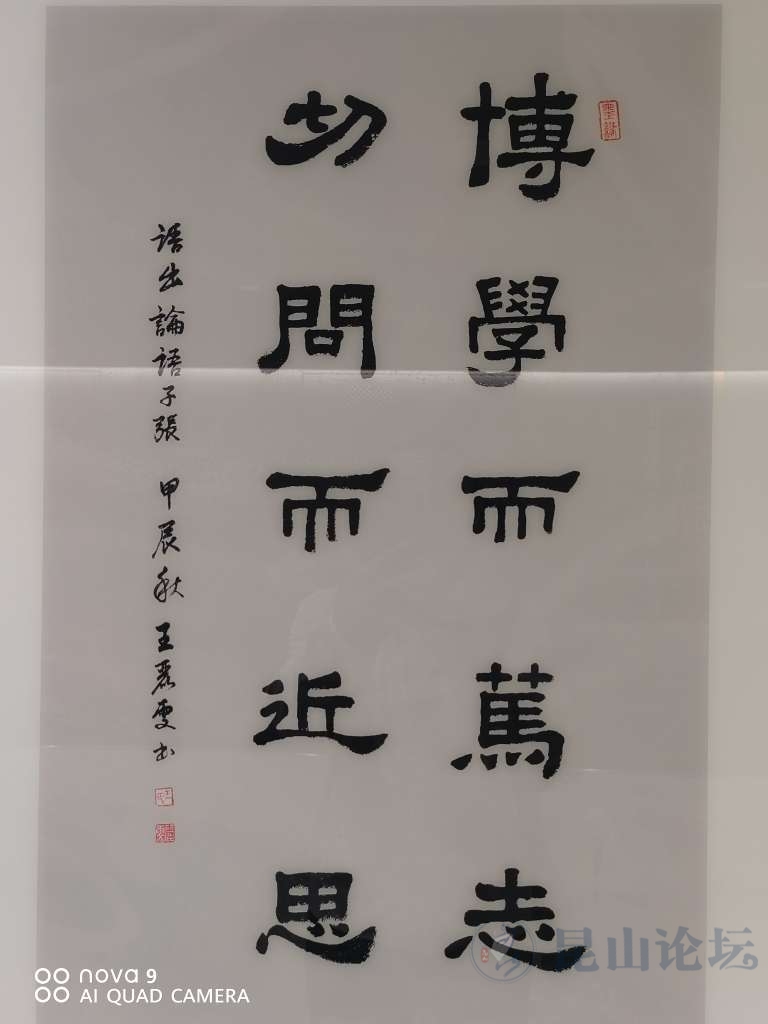 博學而篤志
切問而近思
語出論語子張 甲辰秋 王麗雯书
nova 9
AI QUAD CAMERA
昆山论坛